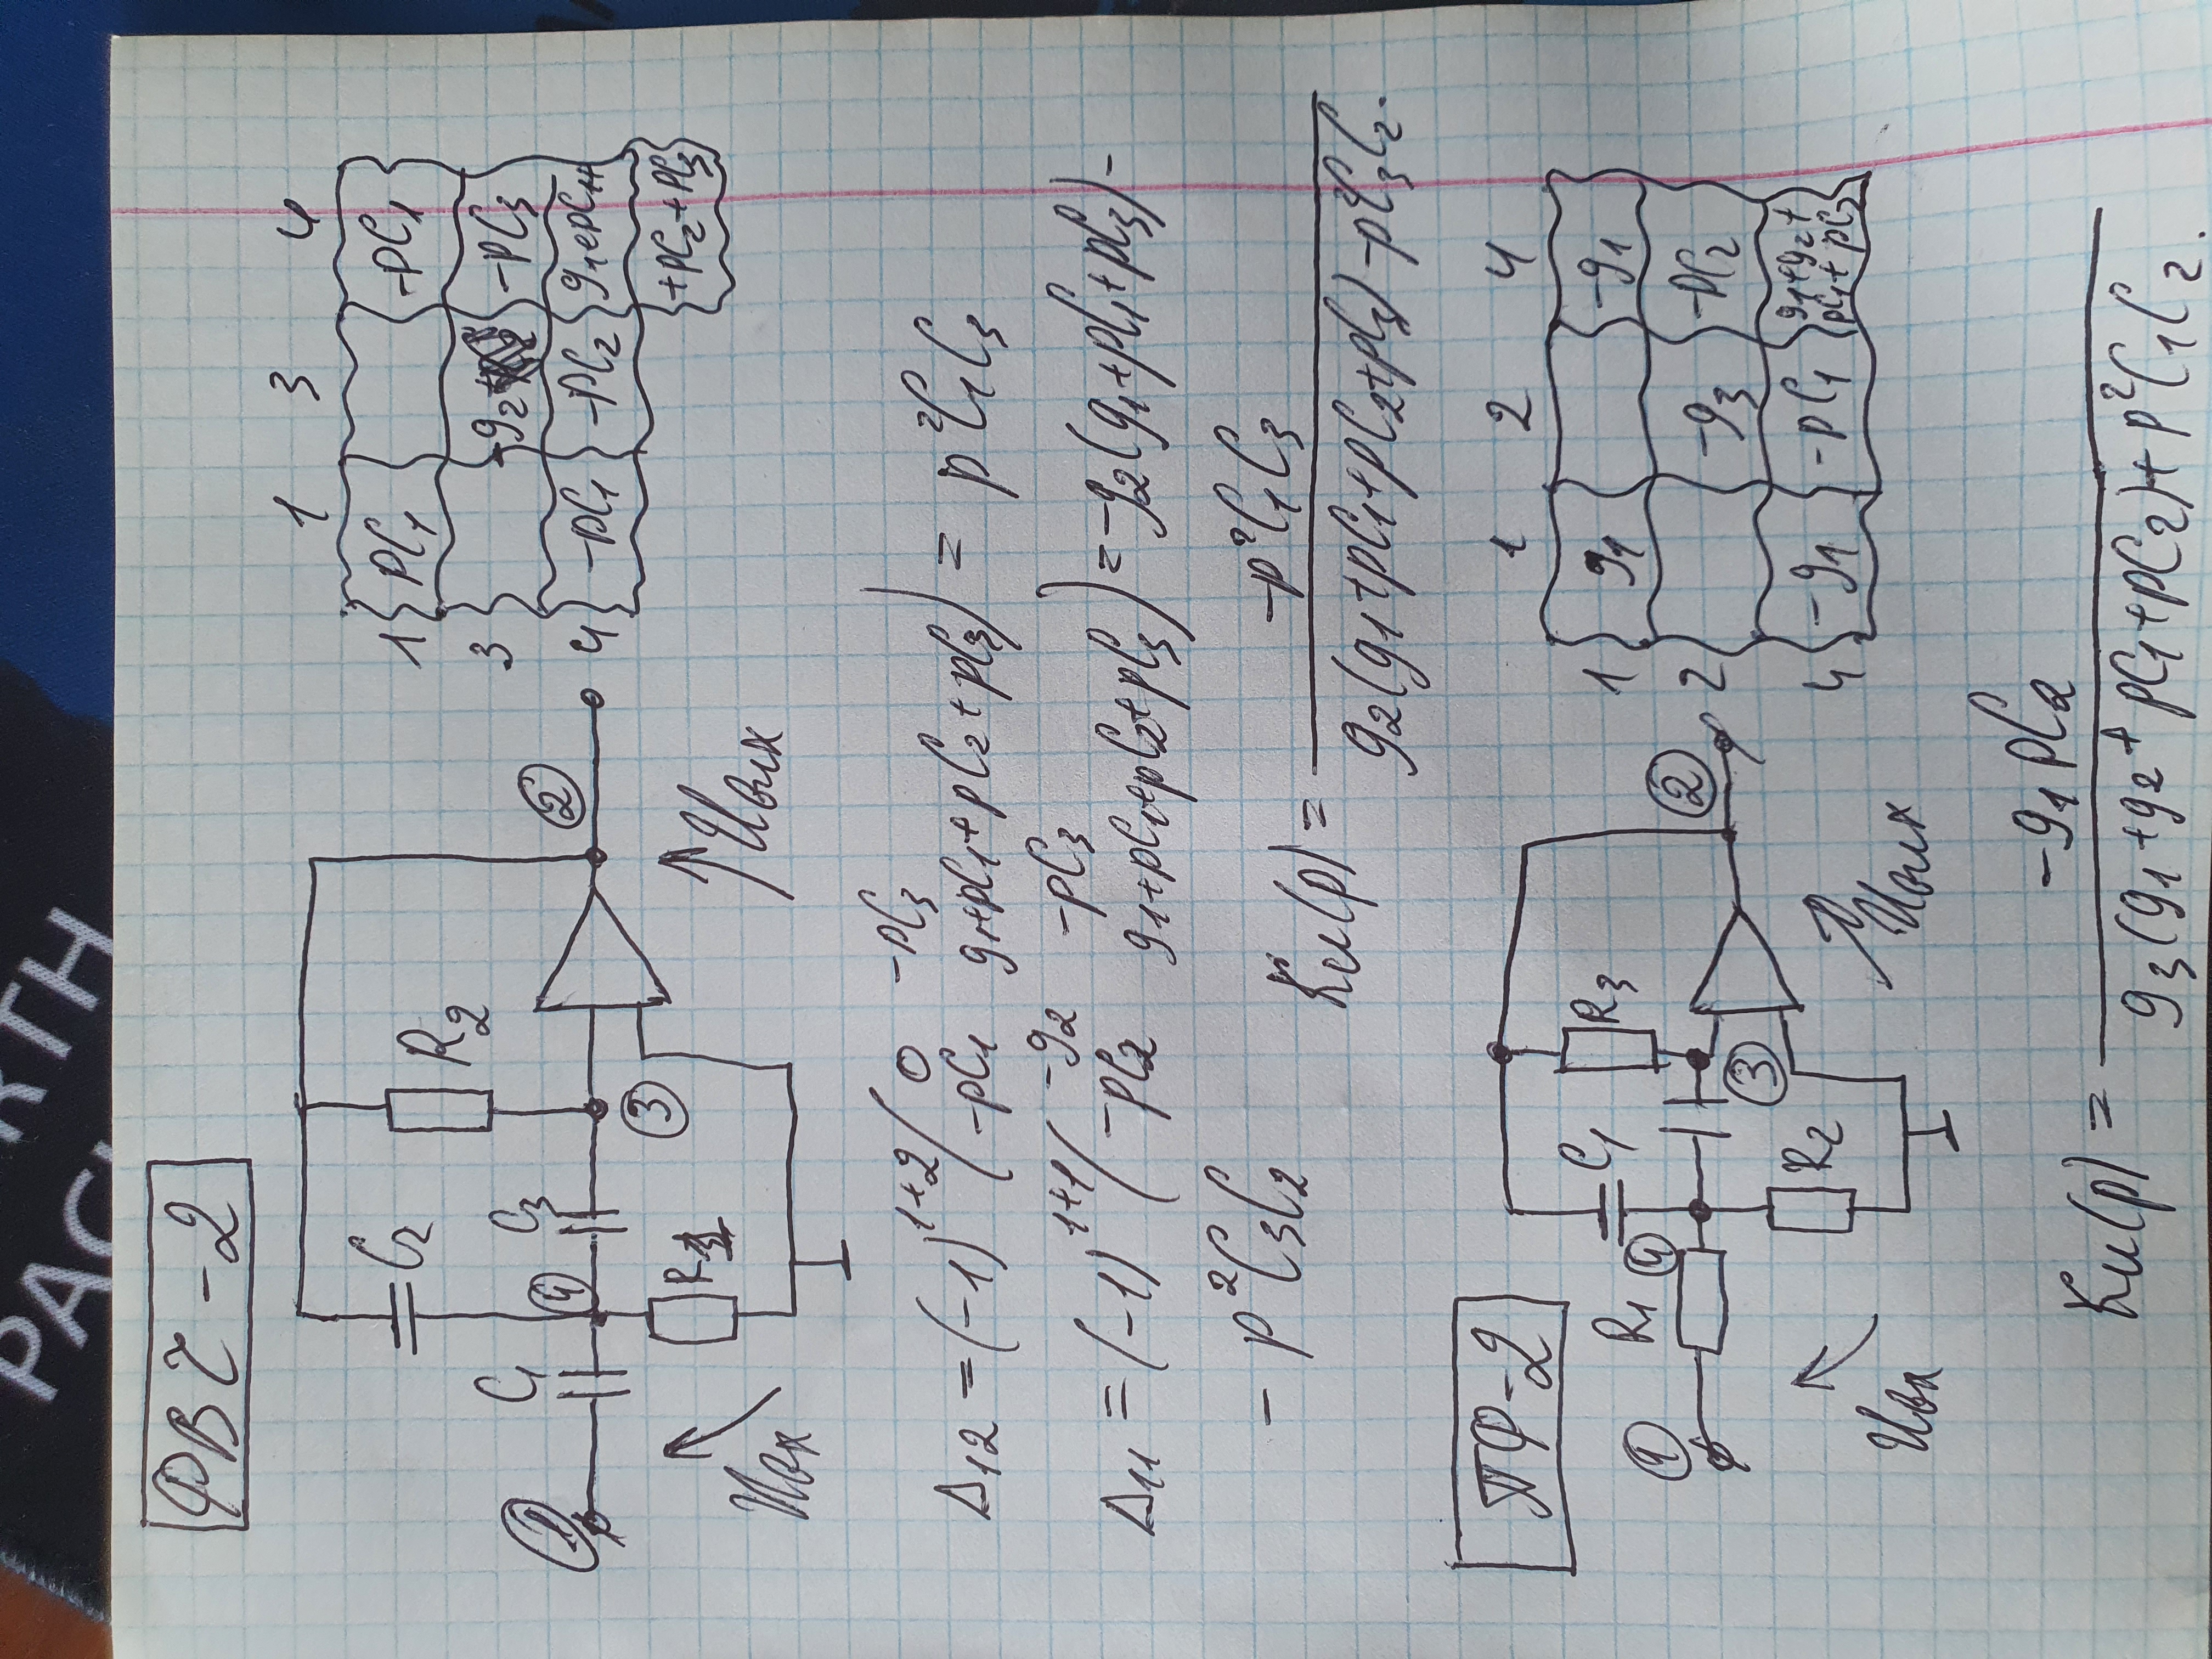 RTH
PAC
ФВЧ-2
C2
R2
C1
C3
1
4
3
2
R1
Uвх
Uвих
1 3 4
1 pC1 -pC1
3 -g2 -pC3
4 -pC1 -pC2 g1+pC1+
+pC2+pC3
Δ12 = (-1)^1+2 ( 0 -pC3
-pC1 g1+pC1+pC2+pC3) = p²C1C3
Δ11 = (-1)^1+1 ( -g2 -pC3
-pC2 g1+pC1+pC2+pC3) = -g2(g1+pC1+pC3)-
- p²C3C2
Ku(p) = -p²C1C3
g2(g1+pC1+pC2+pC3)-p²C3C2.
ПФ-2
C1
R3
R1
1
4
3
2
R2
Uвх
Uвих
1 2 4
1 g1 -g1
2 -g3 -pC2
4 -g1 -pC1 g1+g2+
pC1+pC2
Ku(p) = -g1pC2
g3(g1+g2+pC1+pC2)+p²C1C2.